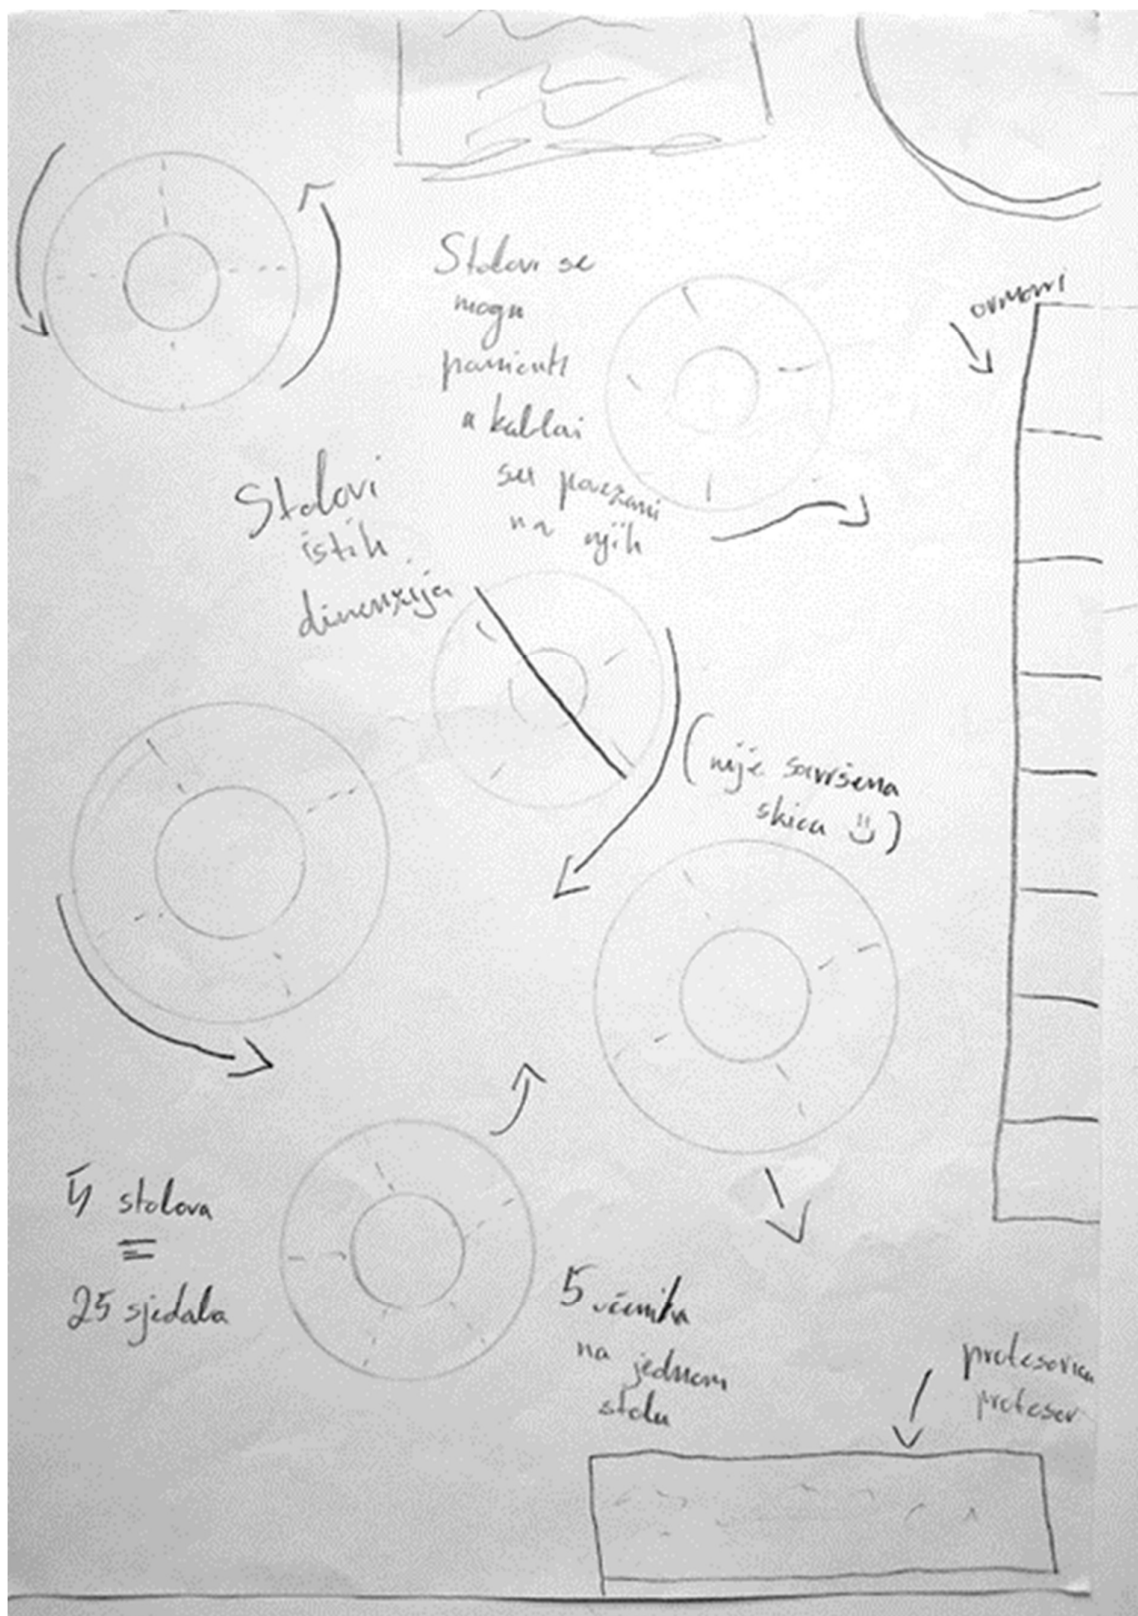 Stolovi se
mogu
pomicati
a kablovi
su povezani
na njih
ormari
Stolovi
istih
dimenzija
(nije savršena
skica :))
5 stolova
=
25 sjedala
5 učenika
na jednom
stolu
profesorica
profesor